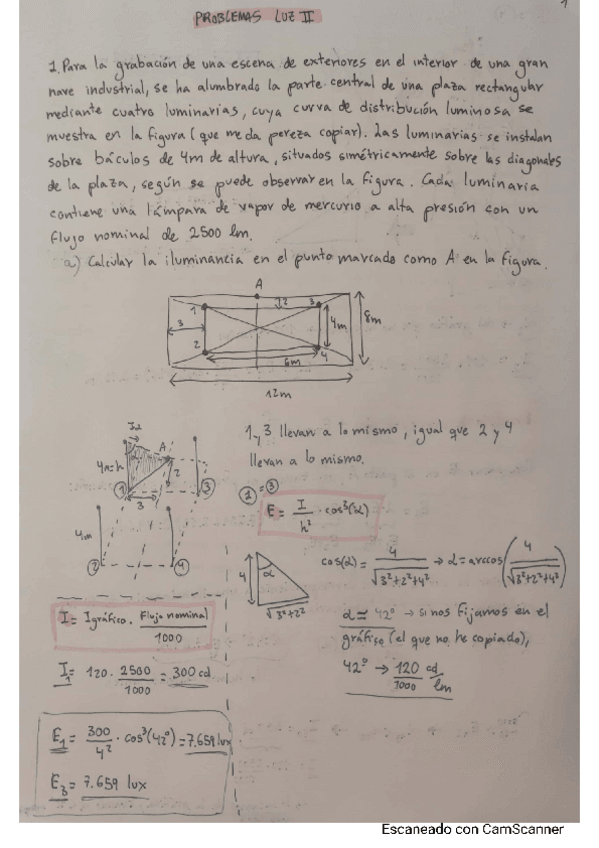 1
PROBLEMAS LUZ II
1. Para la grabación de una escena de exteriores en el interior de una gran
nave industrial, se ha alumbrado la parte central de una plaza rectangular
mediante cuatro luminarias, cuya curva de distribución luminosa se
muestra en la figura (que me da pereza copiar). Las luminarias se instalan
sobre báculos de 4m de altura, situados simétricamente sobre las diagonales
de la plaza, según se puede observar en la figura. Cada luminaria
contiene una lámpara de vapor de mercurio a alta presión con un
flujo nominal de 2500 lm.
a) Calcular la iluminancia en el punto marcado como A en la figura.
A
1 2 3
3 4m 8m
2 6m 4
12m
1 y 3 llevan a lo mismo, igual que 2 y 4
llevan a lo mismo.
Iα
α A
4m=h 2
1 3 3
4m
2 4
1 = 3
E = I/h² · cos³(α)
4 α √3²+2²
cos(α) = 4/√3²+2²+4² → α = arccos(4/√3²+2²+4²)
α ≃ 42° → si nos fijamos en el
gráfico (el que no he copiado),
42° → 120/1000 cd/lm
I = Igráfico · Flujo nominal/1000
I₁ = 120 · 2500/1000 = 300 cd
E₁ = 300/4² · cos³(42°) = 7.659 lux
E₃ = 7.659 lux
Escaneado con CamScanner